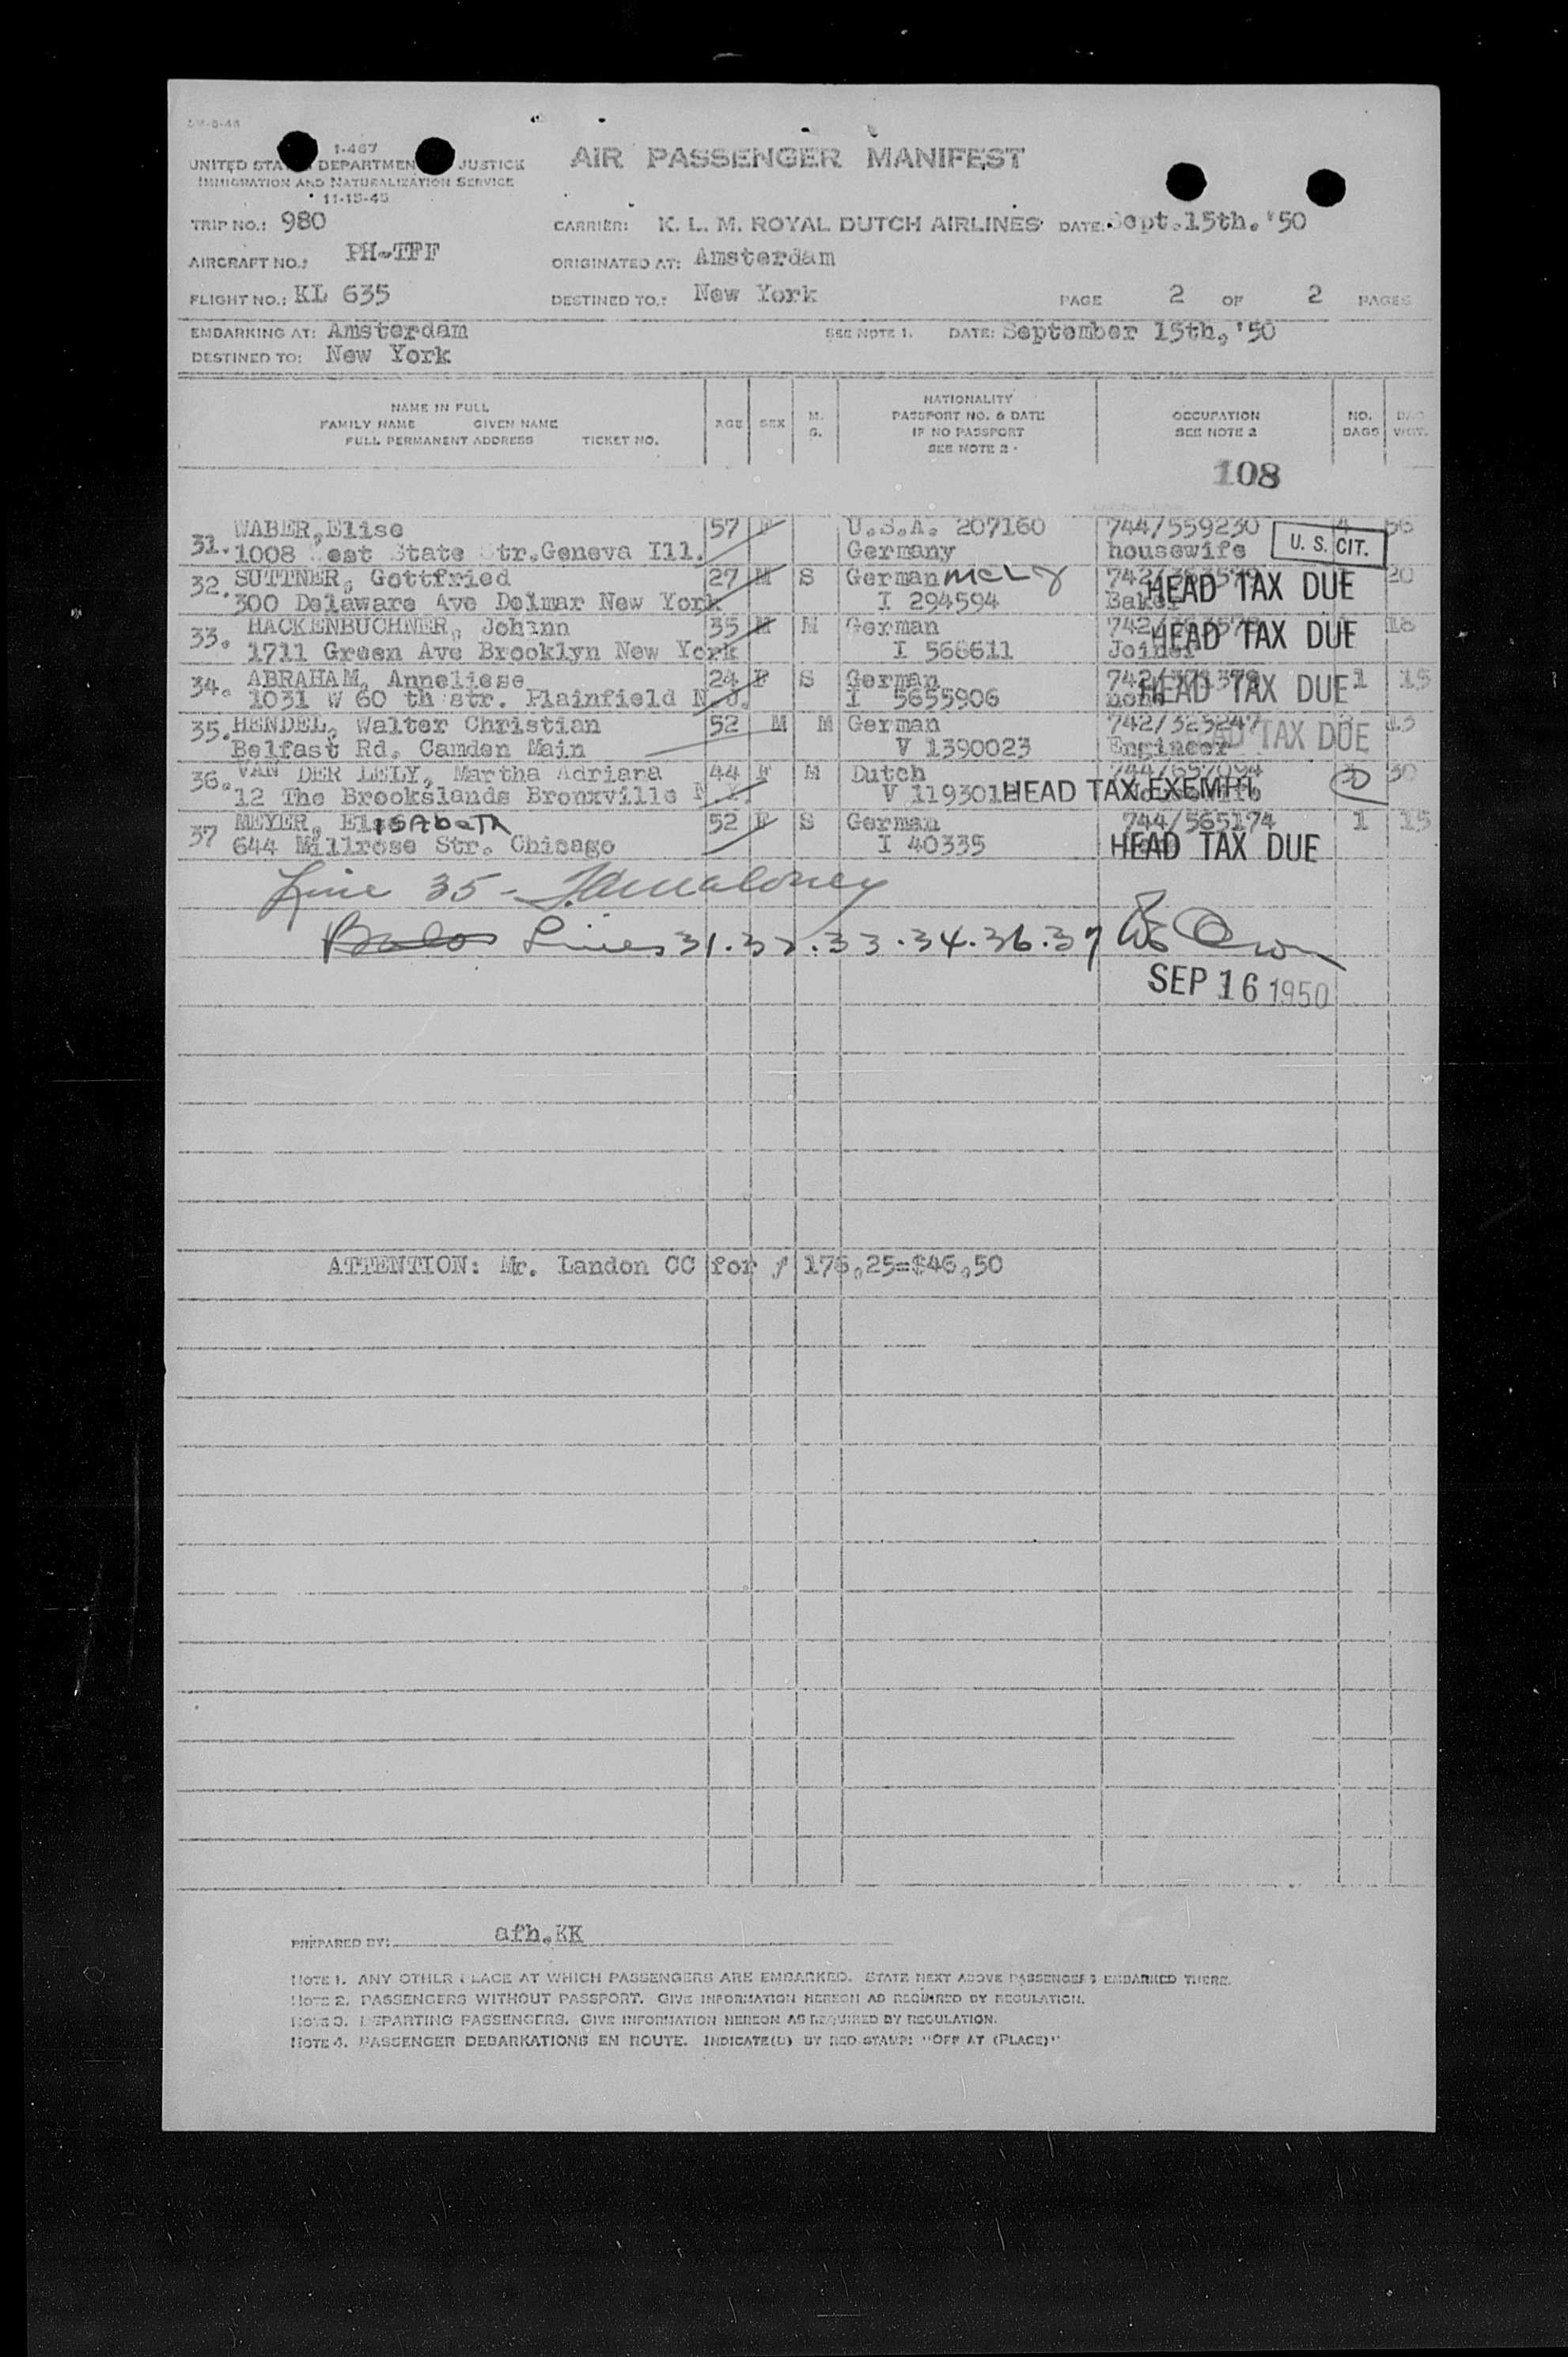 1-467
UNITED STA DEPARTMEN JUSTICE
IMMIGRATION AND NATURALIZATION SERVICE
11-15-45
AIR PASSENGER MANIFEST
TRIP NO.: 980
CARRIER: K. L. M. ROYAL DUTCH AIRLINES DATE: Sept.15th.'50
AIRCRAFT NO.: PH-TFF
ORIGINATED AT: Amsterdam
FLIGHT NO.: KL 635
DESTINED TO.: New York
PAGE 2 OF 2 PAGES
EMBARKING AT: Amsterdam
SEE NOTE 1. DATE: September 15th,'50
DESTINED TO: New York
NAME IN FULL
FAMILY NAME GIVEN NAME
FULL PERMANENT ADDRESS TICKET NO.
AGE SEX M. S.
NATIONALITY
PASSPORT NO. & DATE
IF NO PASSPORT
SEE NOTE 2
OCCUPATION
SEE NOTE 2
NO. BAGS
BAG WGT.
108
31. WABER,Elise 57 F U.S.A. 207160 744/559230 4 56
1008 West State Str.Geneva Ill. Germany housewife U. S. CIT.
32. SUTTNER, Gottfried 27 M S German 20
300 Delaware Ave Delmar New York I 294594 Baker HEAD TAX DUE
33. HACKENBUCHNER, Johann 35 M M German 18
1711 Green Ave Brooklyn New York I 568611 Joiner HEAD TAX DUE
34. ABRAHAM, Anneliese 24 F S German 1 15
1031 W 60 th str. Plainfield N.J. I 5655906 HEAD TAX DUE
35. HENDEL, Walter Christian 52 M M German 742/323247 13
Belfast Rd. Camden Main V 1390023 Engineer AD TAX DUE
36. VAN DER LELY, Martha Adriana 44 F M Dutch 744/657094 30
12 The Brookslands Bronxville N.Y. HEAD TAX EXEMPT
37 MEYER, Elisabeth 52 F S German 744/565174 1 15
644 Millrose Str. Chicago I 40335 HEAD TAX DUE
Line 35 - Maloney
Lines 31.32.33.34.36.37
SEP 16 1950
ATTENTION: Mr. Landon CC for ƒ 176,25=$46,50
PREPARED BY: afh.KK
NOTE 1. ANY OTHER PLACE AT WHICH PASSENGERS ARE EMBARKED. STATE NEXT ABOVE PASSENGERS EMBARKED THERE.
NOTE 2. PASSENGERS WITHOUT PASSPORT. GIVE INFORMATION HEREON AS REQUIRED BY REGULATION.
NOTE 3. DEPARTING PASSENGERS. GIVE INFORMATION HEREON AS REQUIRED BY REGULATION.
NOTE 4. PASSENGER DEBARKATIONS EN ROUTE. INDICATE(D) BY RED STAMP: "OFF AT (PLACE)"